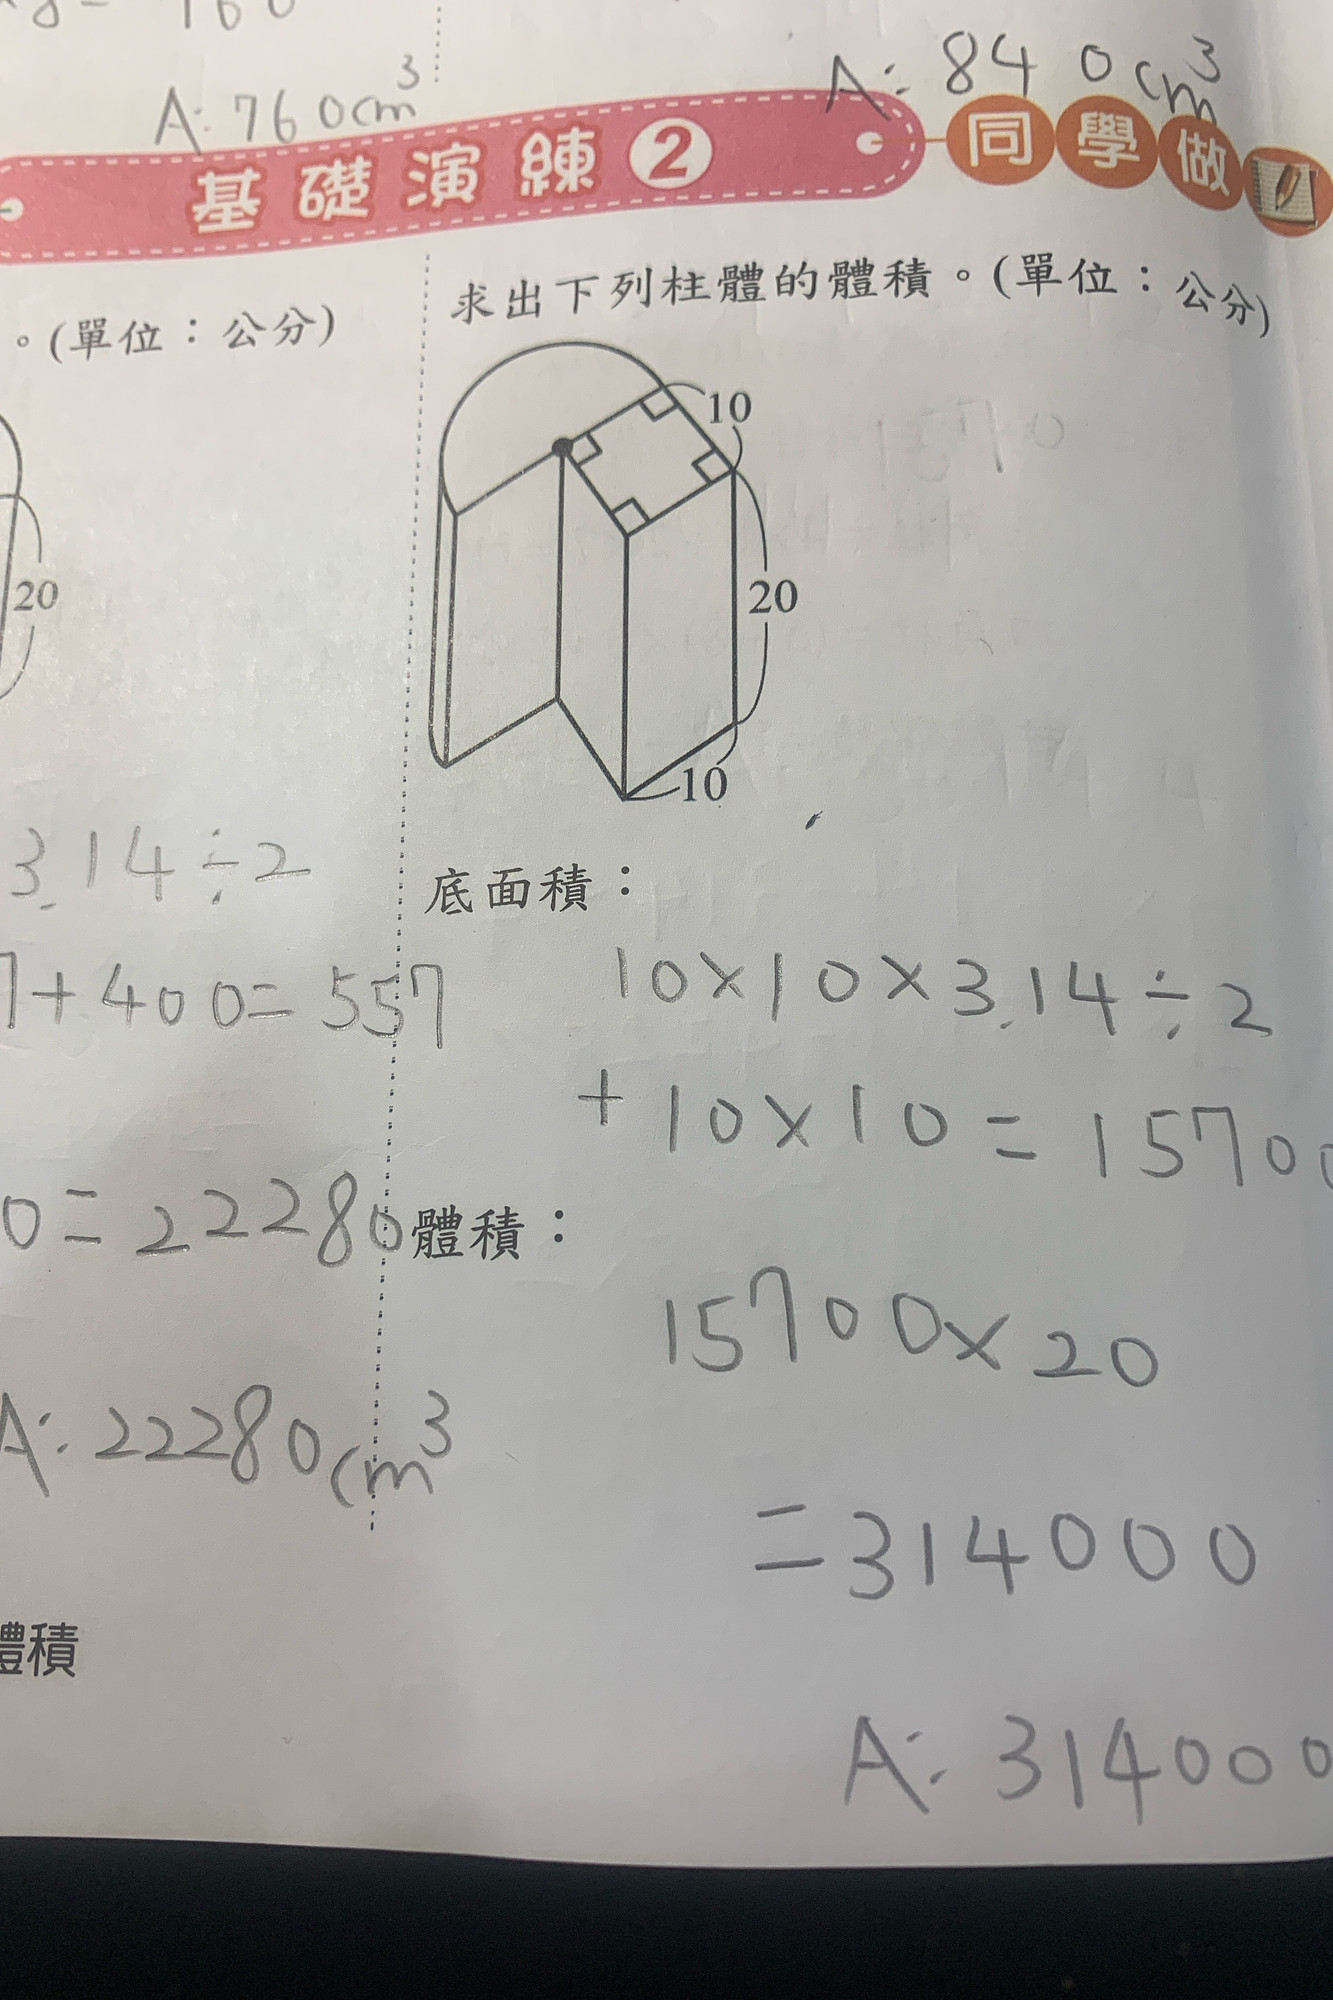 A: 760cm³
A: 840cm³
基礎演練 2 同學做
。(單位：公分)
20
3.14÷2
7+400=557
0=22280
A: 22280cm³
體積
求出下列柱體的體積。(單位：公分)
10
20
10
底面積：
10×10×3.14÷2
+10×10=15700
體積：
15700×20
=314000
A: 314000